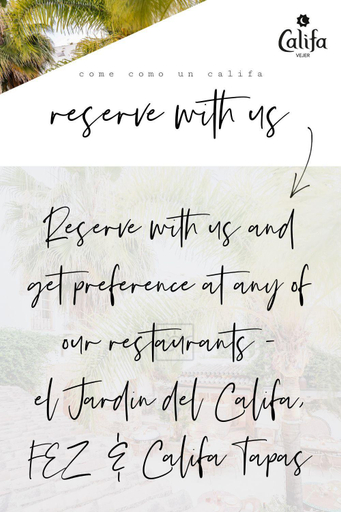 Califa
VEJER
come como un califa
reserve with us
Reserve with us and
get preference at any of
our restaurants -
el Jardin del Califa,
FEZ & Califa Tapas